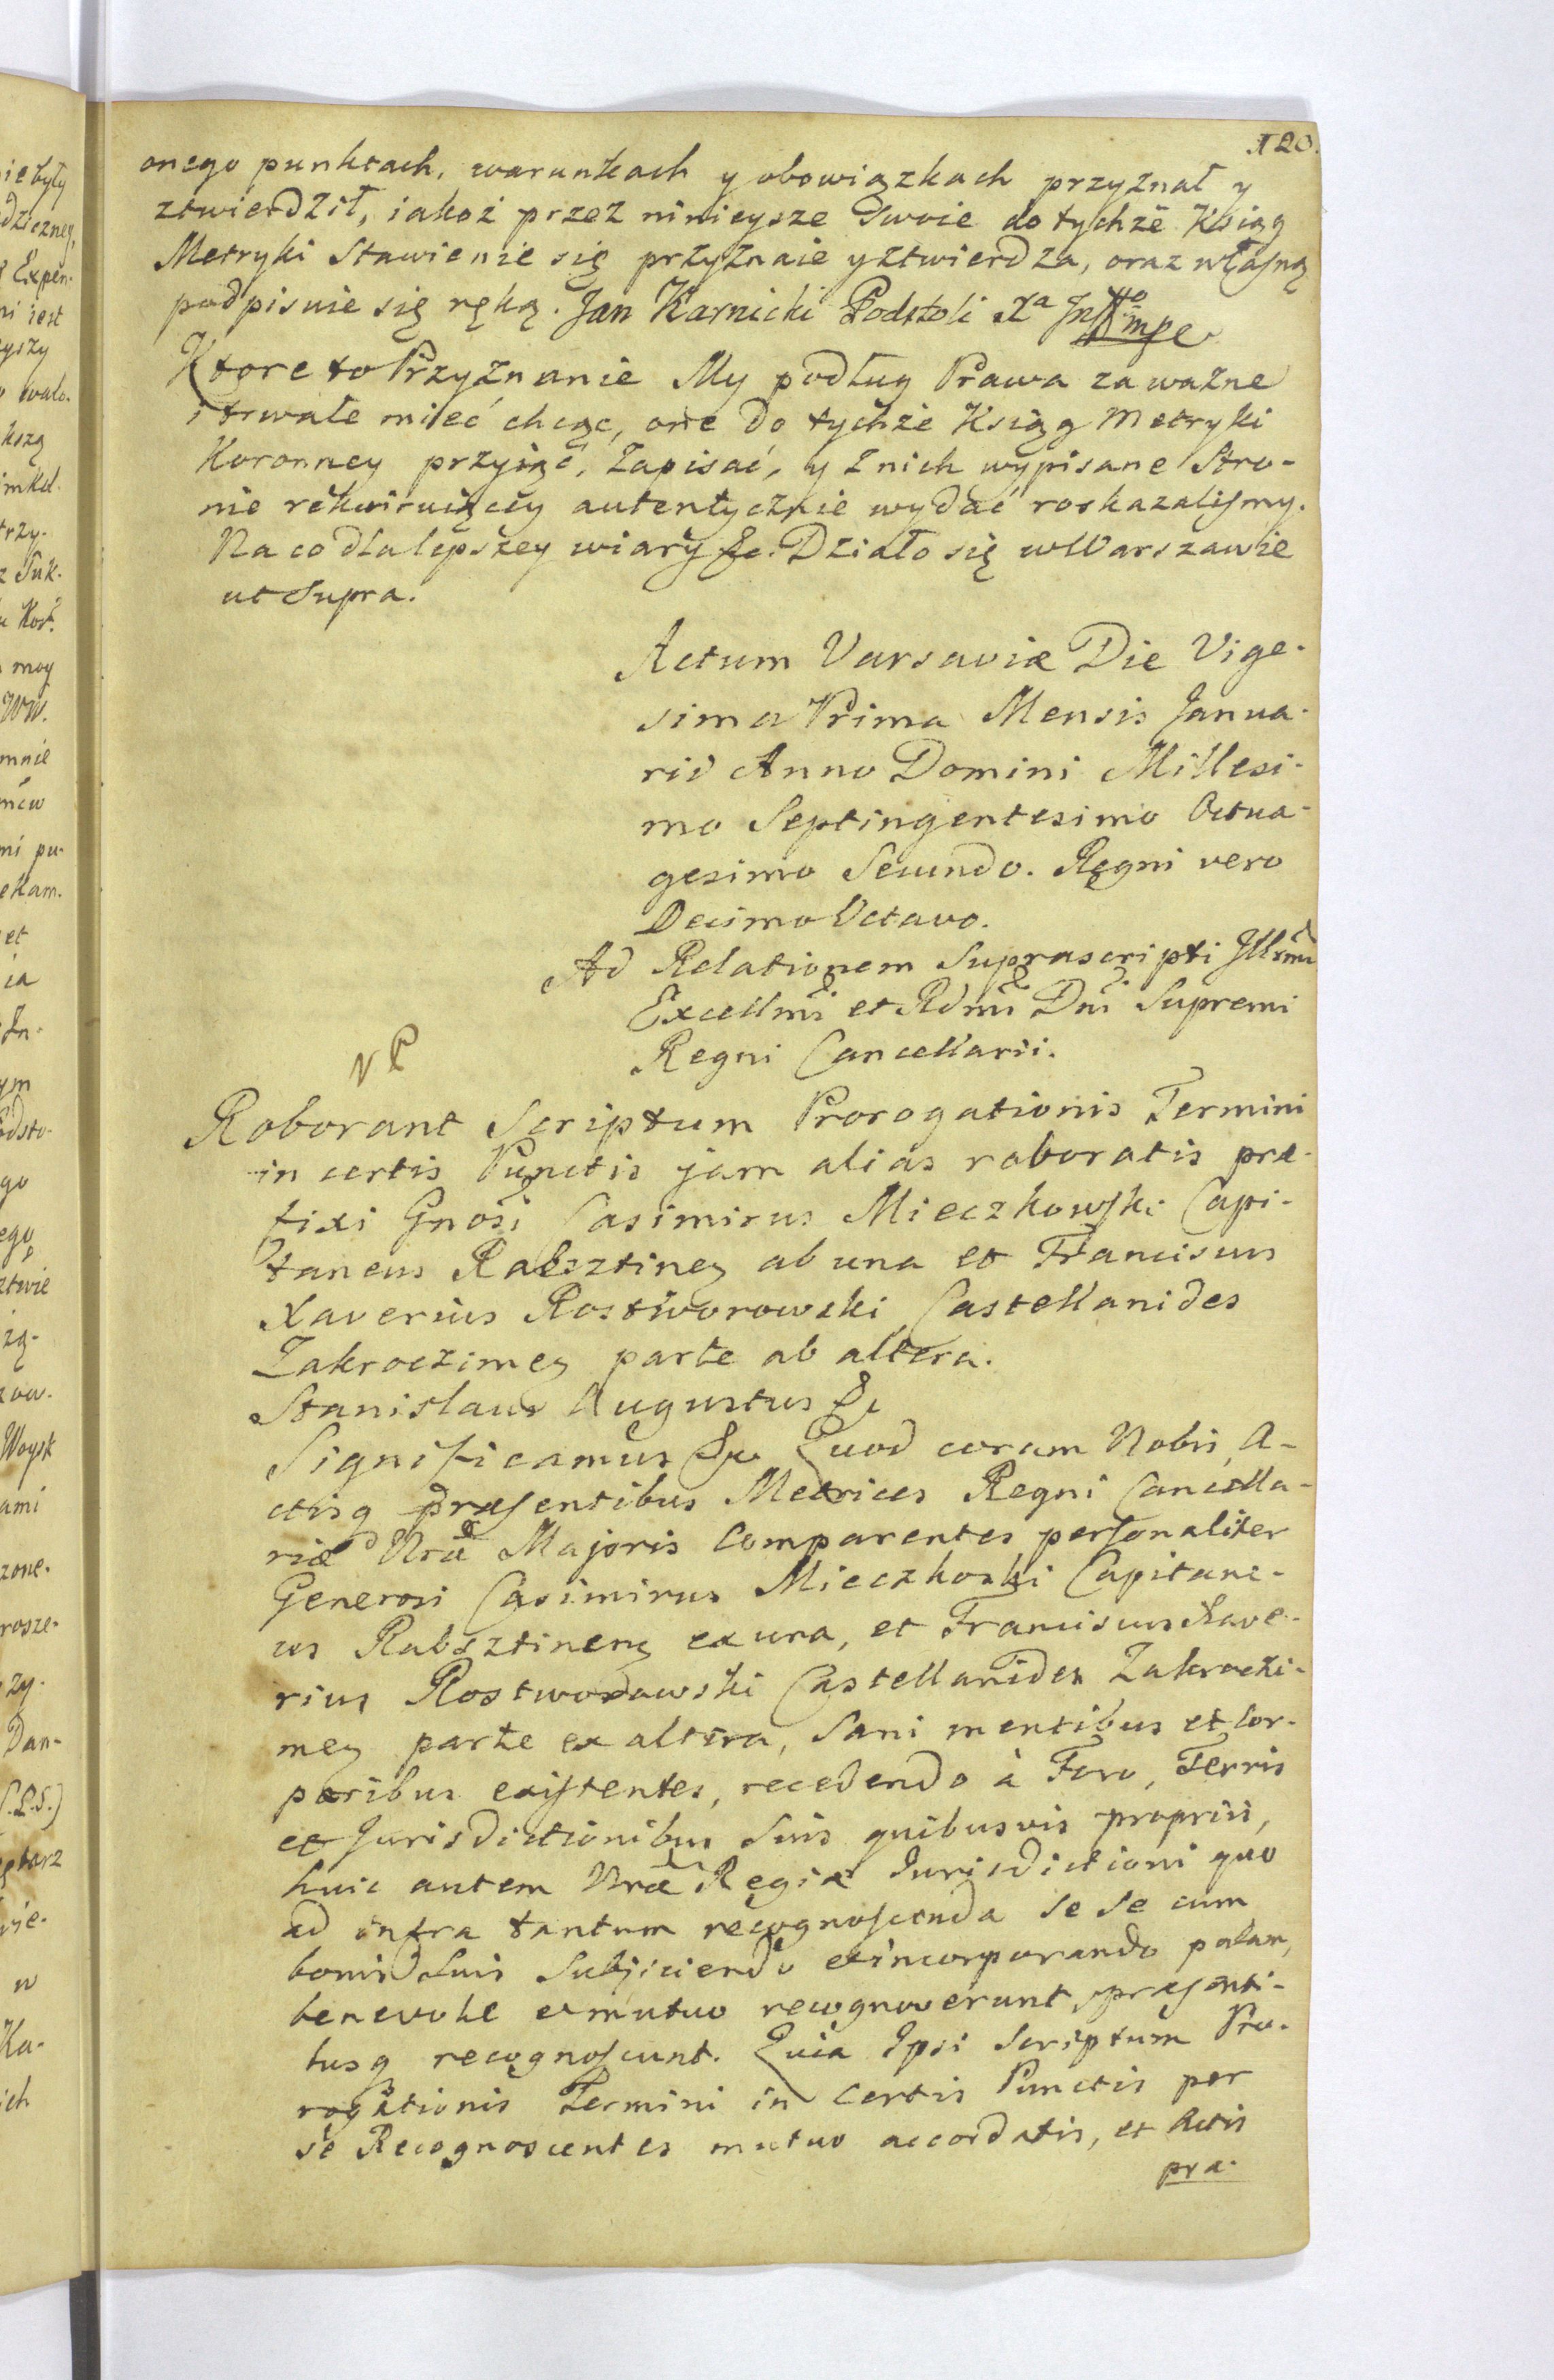 120.
onego punktach, warunkach y obowiązkach przyznał y
ztwierdził, iakoż przez ninieysze Swoie do tychże Ksiąg
Metryki Stawienie się przyznaie y ztwierdza, oraz własną
podpisuie się ręką. Jan Karnicki Podstoli Xa Inftto mpe
Ktore to Przyznanie My podług Prawa za ważne
i trwałe mieć chcąc, one do tychże Ksiąg Metryki
Koronney przyiąć, Zapisać, y Znich wypisane Stro-
nie rekwiruiącey autentycznie wydać roskazalismy.
Na co dla lepszey wiary &c. Działo się w Warszawie
ut Supra.
Actum Varsaviæ Die Vige-
sima Prima Mensis Janua-
rii Anno Domini Millesi-
mo Septingentesimo Octua-
gesimo Secundo. Regni vero
Decimo Octavo.
Ad Relationem Suprascripti Illsmi
Excellmi et Rdmi Dni Supremi
Regni Cancellarii.
NP
Roborant Scriptum Prorogationis Termini
in certis Punctis jam alias roboratis præ-
fixi Gnosi Casimirus Mieczkowski Capi-
taneus Rabsztineg ab una et Franciscus
Xaverius Rostworowski Castellanides
Zakroczimeg parte ab altera.
Stanislaus Augustus &c
Significamus &c Quod coram Nobis A-
ctisq præsentibus Metrices Regni Cancella-
riæ Nræ Majoris Comparentes personaliter
Generosi Casimirus Mieczkoski Capitane-
us Rabsztineng ex una, et Franciscus Xave-
rius Rostworowski Castellanides Zakroczi-
meg parte ex altera, Sani mentibus et Cor-
poribus existentes, recedendo à Foro, Terris
et Jurisdictionibus Suis quibusvis propriis,
huic autem Nræ Regiæ Jurisdictioni quo
ad infra tantum recognoscenda se se cum
bonis Suis Subjiciendo et incorporando palam,
benevole et mutuo recognoverunt, præsenti-
busq recognoscunt. Quia Ipsi Scriptum Pro-
rogationis Termini in Certis Punctis per
se Recognoscentes mutuo accordatis, et Actis
præ-